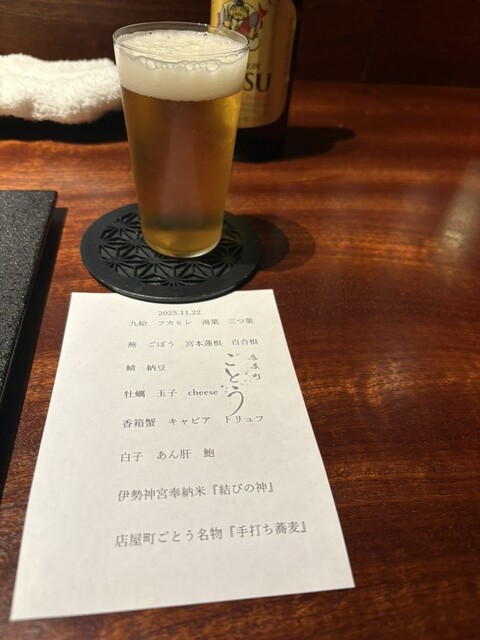 SU
2025.11.22
九絵 フカヒレ 湯葉 三つ葉
蕪 ごぼう 宮本蓮根 百合根
鯖 納豆
牡蠣 玉子 cheese
店屋町
ごとう
香箱蟹 キャビア トリュフ
白子 あん肝 鮑
伊勢神宮奉納米『結びの神』
店屋町ごとう名物『手打ち蕎麦』